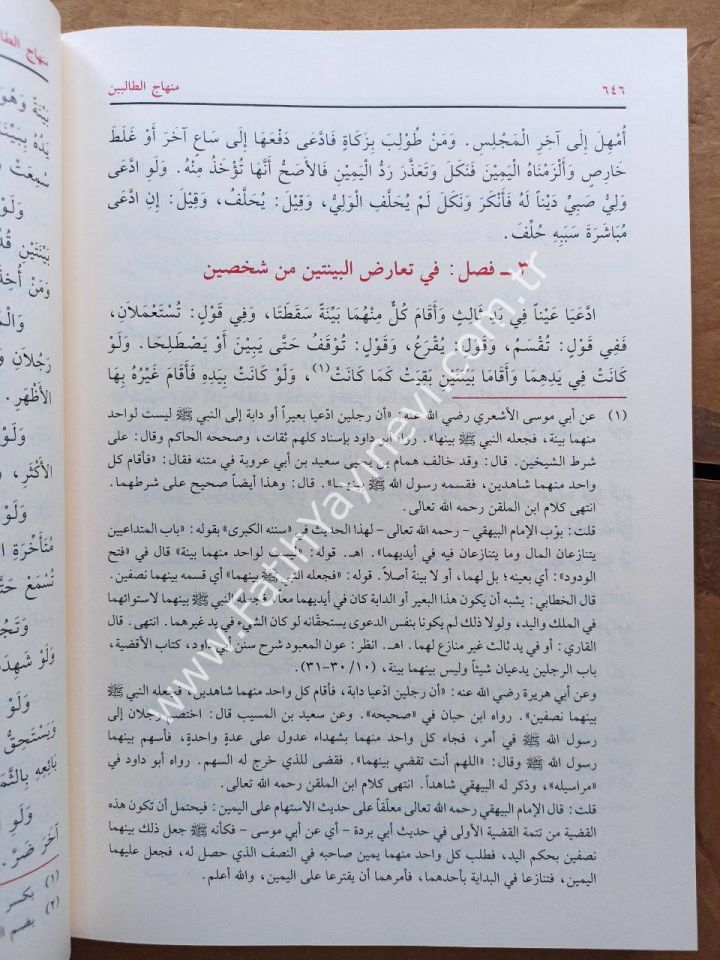 ٦٤٦
منهاج الطالبين
أُمْهِلَ إِلَى آخِرِ الْمَجْلِسِ. وَمَنْ طُولِبَ بِزَكَاةٍ فَادَّعَى دَفْعَهَا إِلَى سَاعٍ آخَرَ أَوْ غَلَطَ
خَارِصٍ وَأَلْزَمْنَاهُ الْيَمِينَ فَنَكَلَ وَتَعَذَّرَ رَدُّ الْيَمِينِ فَالأَصَحُّ أَنَّهَا تُؤْخَذُ مِنْهُ. وَلَوِ ادَّعَى
وَلِيُّ صَبِيٍّ دَيْناً لَهُ فَأَنْكَرَ وَنَكَلَ لَمْ يُحَلَّفِ الْوَلِيُّ، وَقِيْلَ: يُحَلَّفُ، وَقِيْلَ: إِنِ ادَّعَى
مُبَاشَرَةَ سَبَبِهِ حُلِّفَ.
٣ ـ فصل: في تعارض البينتين من شخصين
ادَّعَيَا عَيْناً فِي يَدِ ثَالِثٍ وَأَقَامَ كُلٌّ مِنْهُمَا بَيِّنَةً سَقَطَتَا، وَفِي قَوْلٍ: تُسْتَعْمَلاَنِ،
فَفِي قَوْلٍ: تُقْسَمُ، وَقَوْلٍ: يُقْرَعُ، وَقَوْلٍ: تُوْقَفُ حَتَّى يَبِيْنَ أَوْ يَصْطَلِحَا. وَلَوْ
كَانَتْ فِي يَدِهِمَا وَأَقَامَا بَيِّنَتَيْنِ بَقِيَتْ كَمَا كَانَتْ(١)، وَلَوْ كَانَتْ بِيَدِهِ فَأَقَامَ غَيْرُهُ بِهَا
(١) عن أبي موسى الأشعري رضي الله عنه: «أن رجلين ادّعيا بعيراً أو دابة إلى النبي ﷺ ليست لواحد
منهما بينة، فجعله النبي ﷺ بينها». رواه أبو داود بإسناد كلهم ثقات، وصححه الحاكم وقال: على
شرط الشيخين. قال: وقد خالف همام بن يحيى سعيد بن أبي عروبة في متنه فقال: «فأقام كل
واحد منهما شاهدين، فقسمه رسول الله ﷺ بينهما». قال: وهذا أيضاً صحيح على شرطهما.
انتهى كلام ابن الملقن رحمه الله تعالى.
قلت: بوّب الإمام البيهقي – رحمه الله تعالى – لهذا الحديث في «سننه الكبرى» بقوله: «باب المتداعيين
يتنازعان المال وما يتنازعان فيه في أيديهما». اهـ. قوله: «ليست لواحد منهما بينة» قال في «فتح
الودود»: أي بعينه؛ بل لهما، أو لا بينة أصلاً. قوله: «فجعله النبي ﷺ بينهما» أي قسمه بينهما نصفين.
قال الخطابي: يشبه أن يكون هذا البعير أو الدابة كان في أيديهما معاً، فجعله النبي ﷺ بينهما لاستوائهما
في الملك واليد، ولولا ذلك لم يكونا بنفس الدعوى يستحقّانه لو كان الشيء في يد غيرهما. انتهى. قال
القاري: أو في يد ثالث غير منازع لهما. اهـ. انظر: عون المعبود شرح سنن أبي داود، كتاب الأقضية،
باب الرجلين يدعيان شيئاً وليس بينهما بينة، (١٠/ ٣٠–٣١).
وعن أبي هريرة رضي الله عنه: «أن رجلين ادّعيا دابة، فأقام كل واحد منهما شاهدين، فجعله النبي ﷺ
بينهما نصفين». رواه ابن حبان في «صحيحه». وعن سعيد بن المسيب قال: اختصم رجلان إلى
رسول الله ﷺ في أمر، فجاء كل واحد منهما بشهداء عدول على عدةٍ واحدةٍ، فأسهم بينهما
رسول الله ﷺ وقال: «اللهم أنت تقضي بينهما». فقضى للذي خرج له السهم. رواه أبو داود في
«مراسيله»، وذكر له البيهقي شاهداً. انتهى كلام ابن الملقن رحمه الله تعالى.
قلت: قال الإمام البيهقي رحمه الله تعالى معلّقاً على حديث الاستهام على اليمين: فيحتمل أن تكون هذه
القضية من تتمة القضية الأولى في حديث أبي بردة – أي عن أبي موسى – فكأنه ﷺ جعل ذلك بينهما
نصفين بحكم اليد، فطلب كل واحد منهما يمين صاحبه في النصف الذي حصل له، فجعل عليهما
اليمين، فتنازعا في البداية بأحدهما، فأمرهما أن يقترعا على اليمين، والله أعلم.
www.FatihYayinevi.com.tr